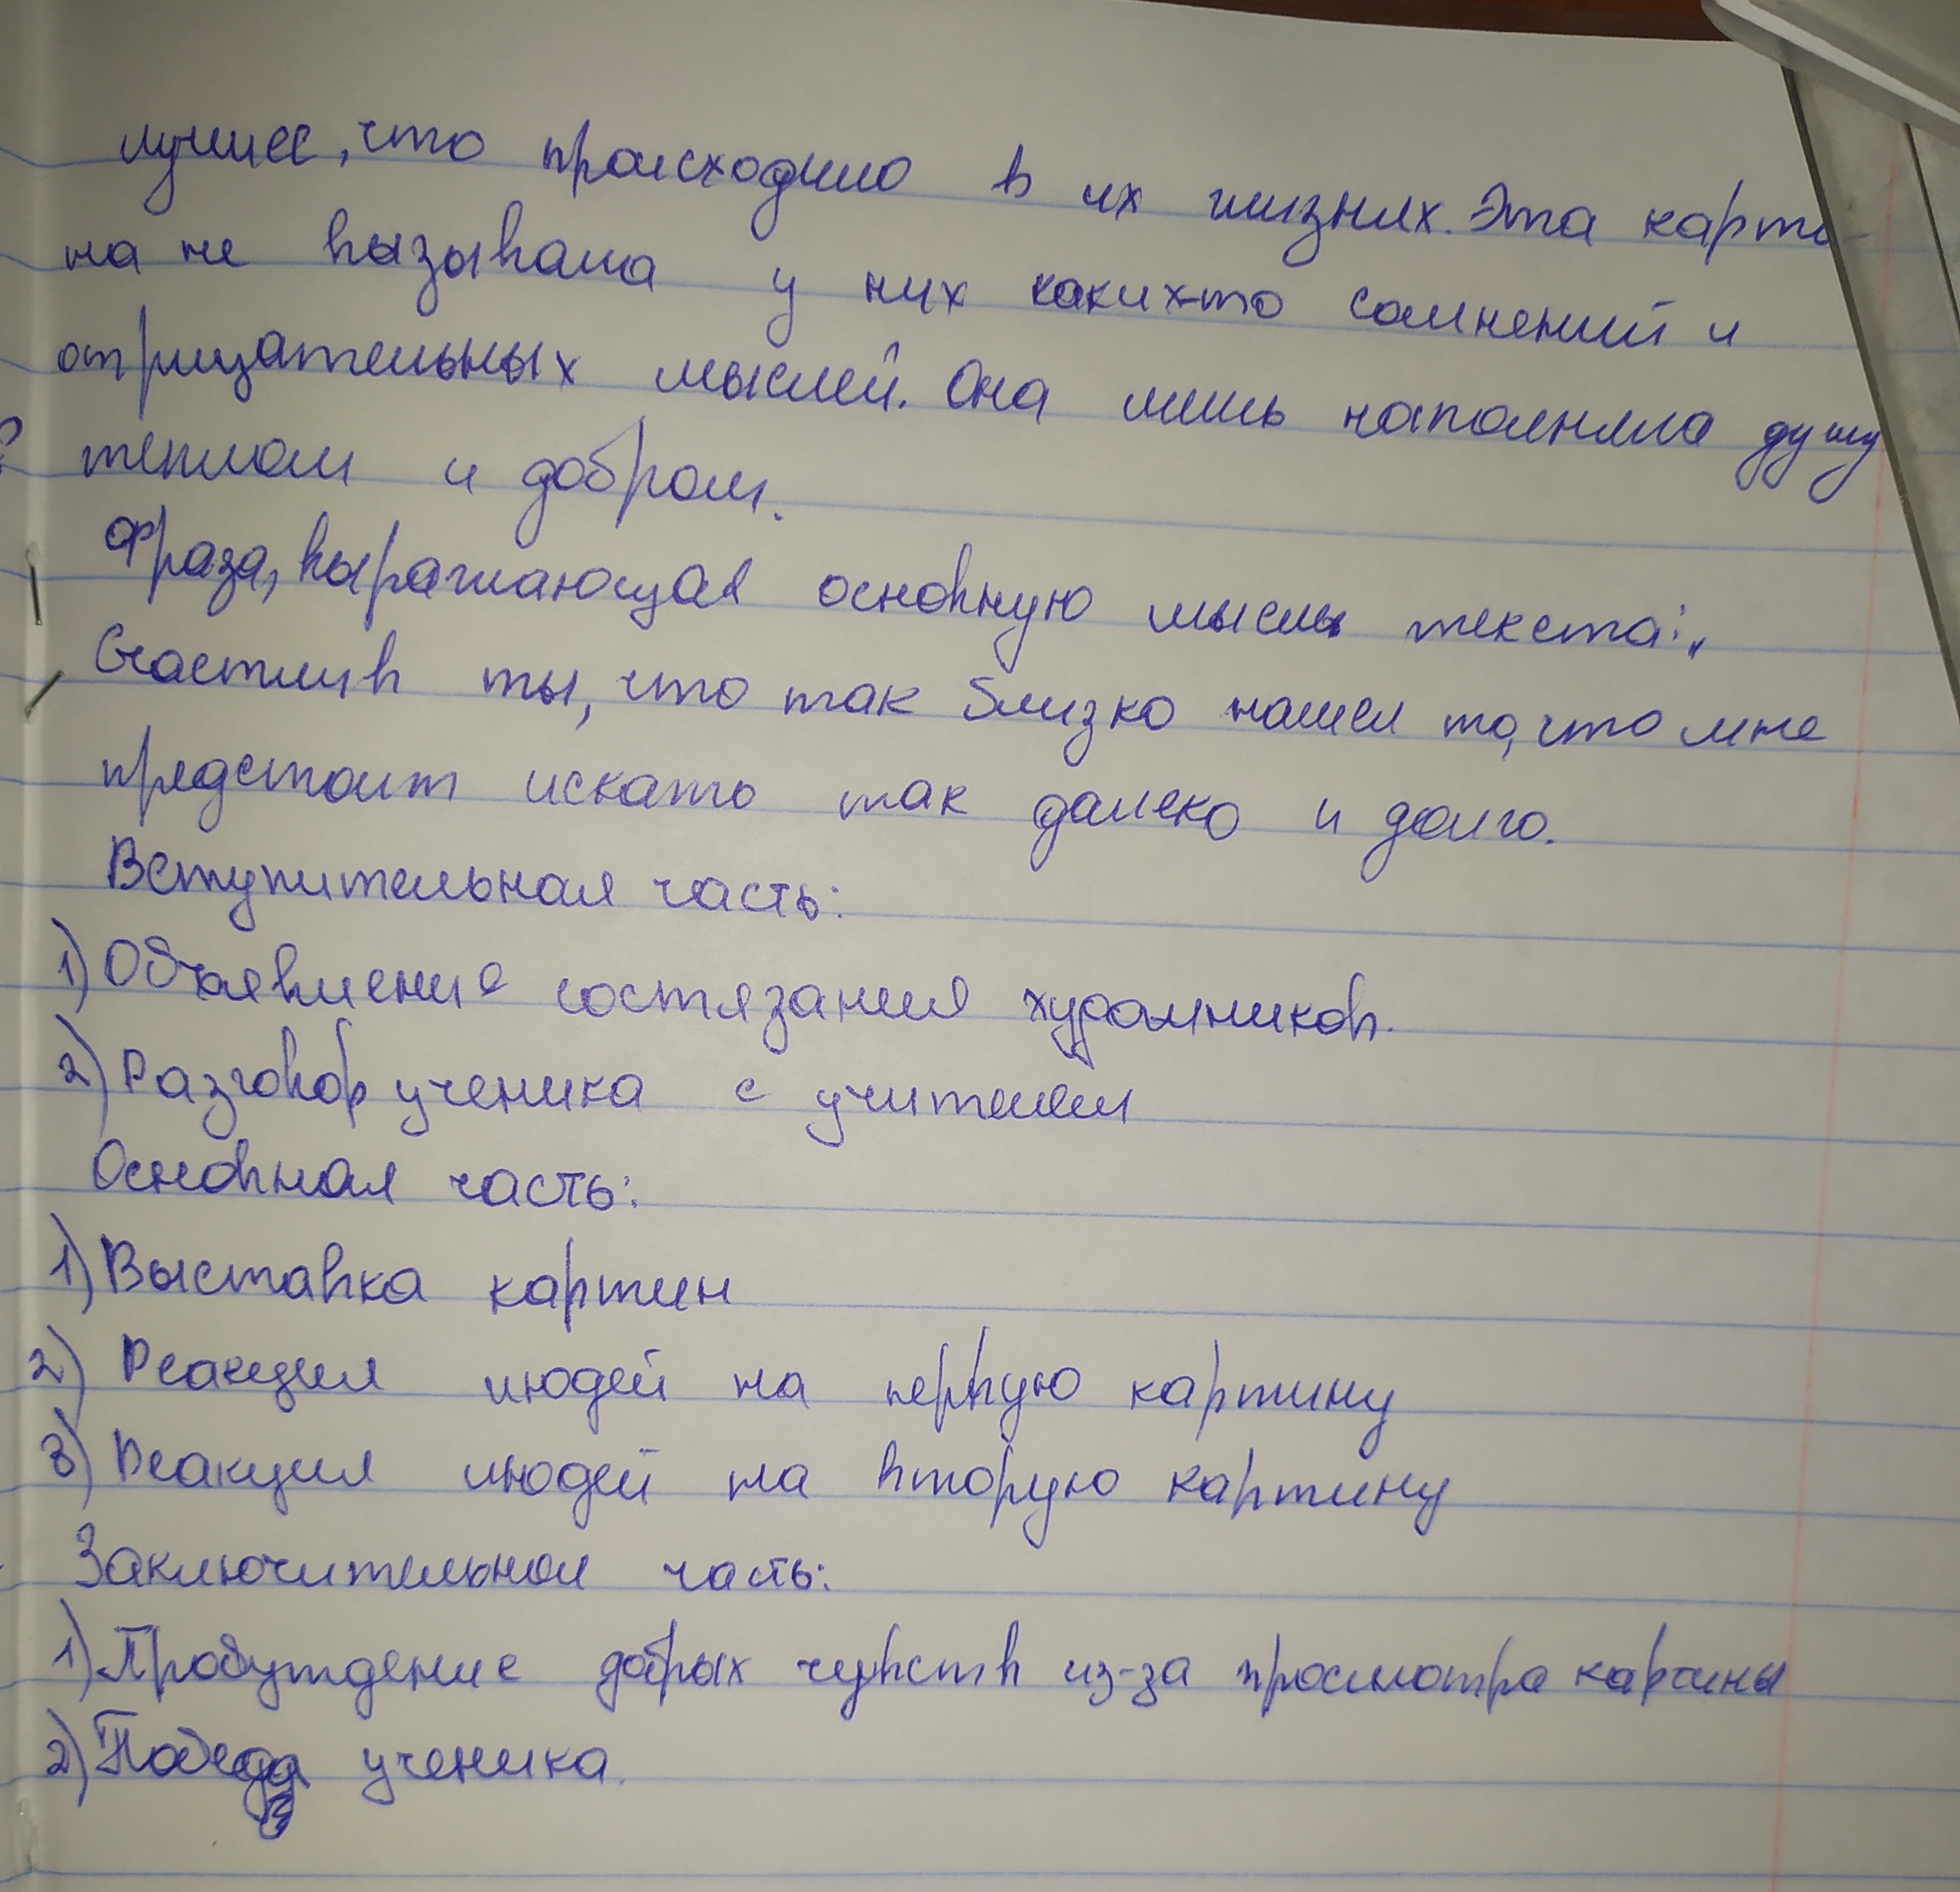 лучшее, что происходило в их жизнях. Эта карти-
на не вызывала у них каких-то сомнений и
отрицательных мыслей. Она лишь наполняла душу
теплом и добром.
Фраза, выражающая основную мысль текста: „
Счастлив ты, что так близко нашел то, что мне
предстоит искать так далеко и долго.
Вступительная часть:
1) Объявление состязания художников.
2) Разговор ученика с учителем
Основная часть:
1) Выставка картин
2) Реакция людей на первую картину
3) Реакция людей на вторую картину
Заключительная часть:
1) Пробуждение добрых чувств из-за просмотра картины
2) Победа ученика.